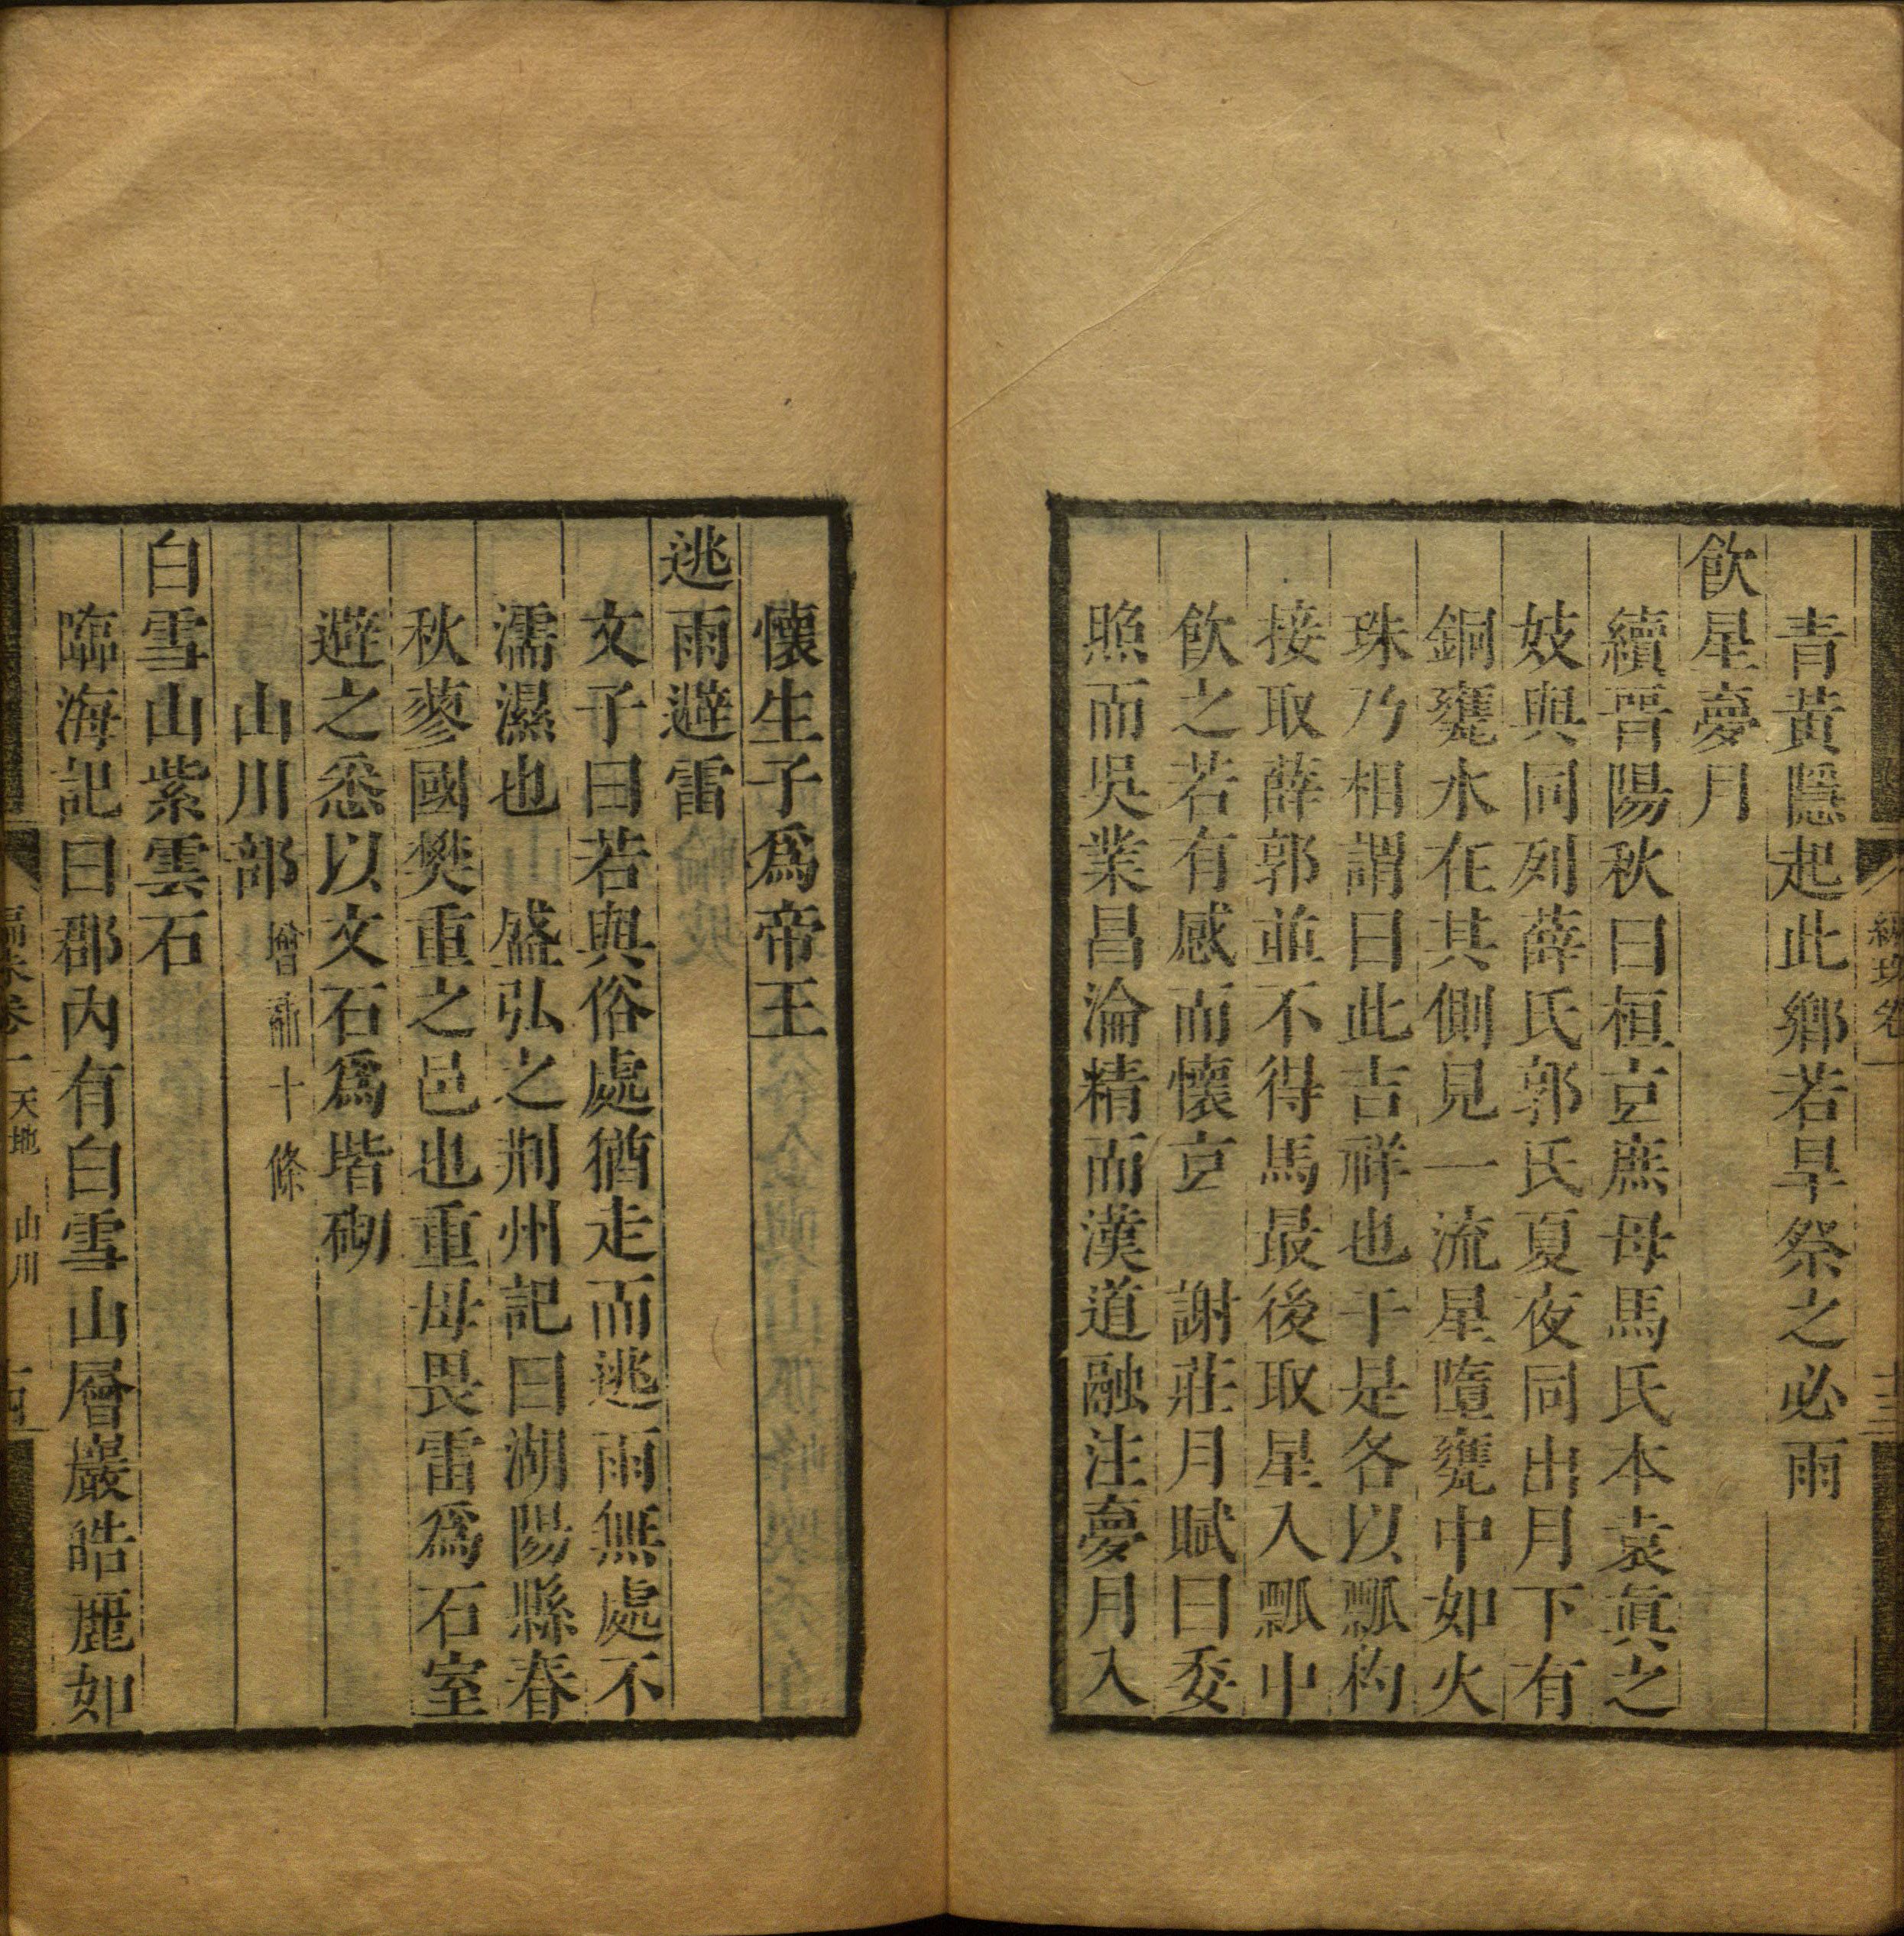 青黃隱起此鄉若旱祭之必雨
飲星夢月
續晉陽秋曰桓亶廡母馬氏本袁眞之
妓與同列薛氏郭氏夏夜同出月下有
銅甕水在其側見一流星墮甕中如火
珠乃相謂曰此吉祥也于是各以瓢杓
接取薛郭並不得馬最後取星入瓢中
飲之若有感而懷亶　謝莊月賦曰委
照而吳業昌淪精而漢道融注夢月入
懷生子爲帝王
逃雨避雷
文子曰若與俗處猶走而逃雨無處不
濡濕也　盛弘之荆州記曰湖陽縣春
秋蓼國樊重之邑也重母畏雷爲石室
避之悉以文石爲堦砌
山川部 增新十條
白雪山紫雲石
臨海記曰郡內有白雪山層巖皓麗如
卷一 天地 山川